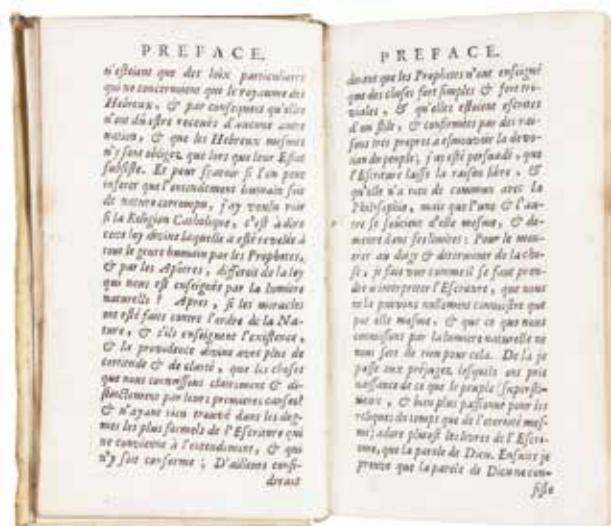 PREFACE.
n'estoient que des loix particulieres
qui ne concernoient que le royaume des
Hebreux, & par consequent qu'elles
n'ont dû estre receuës d'aucune autre
nation, & que les Hebreux mesmes
n'y sont obligez que lors que leur Estat
subsiste. Et pour sçavoir si l'on peut
inferer que l'entendement humain soit
de nature corrompu, j'ay voulu voir
si la Religion Catholique, c'est à dire
cette loy divine laquelle a esté revelée à
tout le genre humain par les Prophetes,
& par les Apôtres, differoit de la loy
qui nous est enseignée par la lumiere
naturelle? Apres, si les miracles
ont esté faits contre l'ordre de la Na-
ture, & s'ils enseignent l'existence,
& la providence divine avec plus de
certitude & de clarté, que les choses
que nous connoissons clairement & di-
stinctement par leurs premieres causes?
& n'ayant rien trouvé dans les dog-
mes les plus formels de l'Escriture qui
ne convienne à l'entendement, & qui
n'y soit conforme; D'ailleurs consi-
derant
PREFACE.
derant que les Prophetes n'ont enseigné
que des choses fort simples & fort tri-
viales, & qu'elles estoient escrites
d'un stile, & confirmées par des rai-
sons tres propres a esmouvoir la devo-
tion du peuple; j'ay esté persuadé, que
l'Escriture laisse la raison libre, &
qu'elle n'a rien de commun avec la
Philosophie, mais que l'une & l'au-
tre se soûtient d'elle mesme, & de-
meure dans ses limites: Pour le mon-
trer au doigt & determiner de la cho-
se, je fait voir comme il se faut pren-
dre a interpreter l'Escriture, que nous
ne la pouvons nullement connoistre que
par elle mesme, & que ce que nous
connoissons par la lumiere naturelle ne
nous sert de rien pour cela. De là je
passe aux préjugez, lesquels ont pris
naissance de ce que le peuple (supersti-
tieux, & bien plus passionné pour les
reliques du temps que de l'eternité mes-
me) adore plustost les livres de l'Escri-
ture, que la parole de Dieu. Ensuite je
preuve que la parole de Dieu ne con-
siste